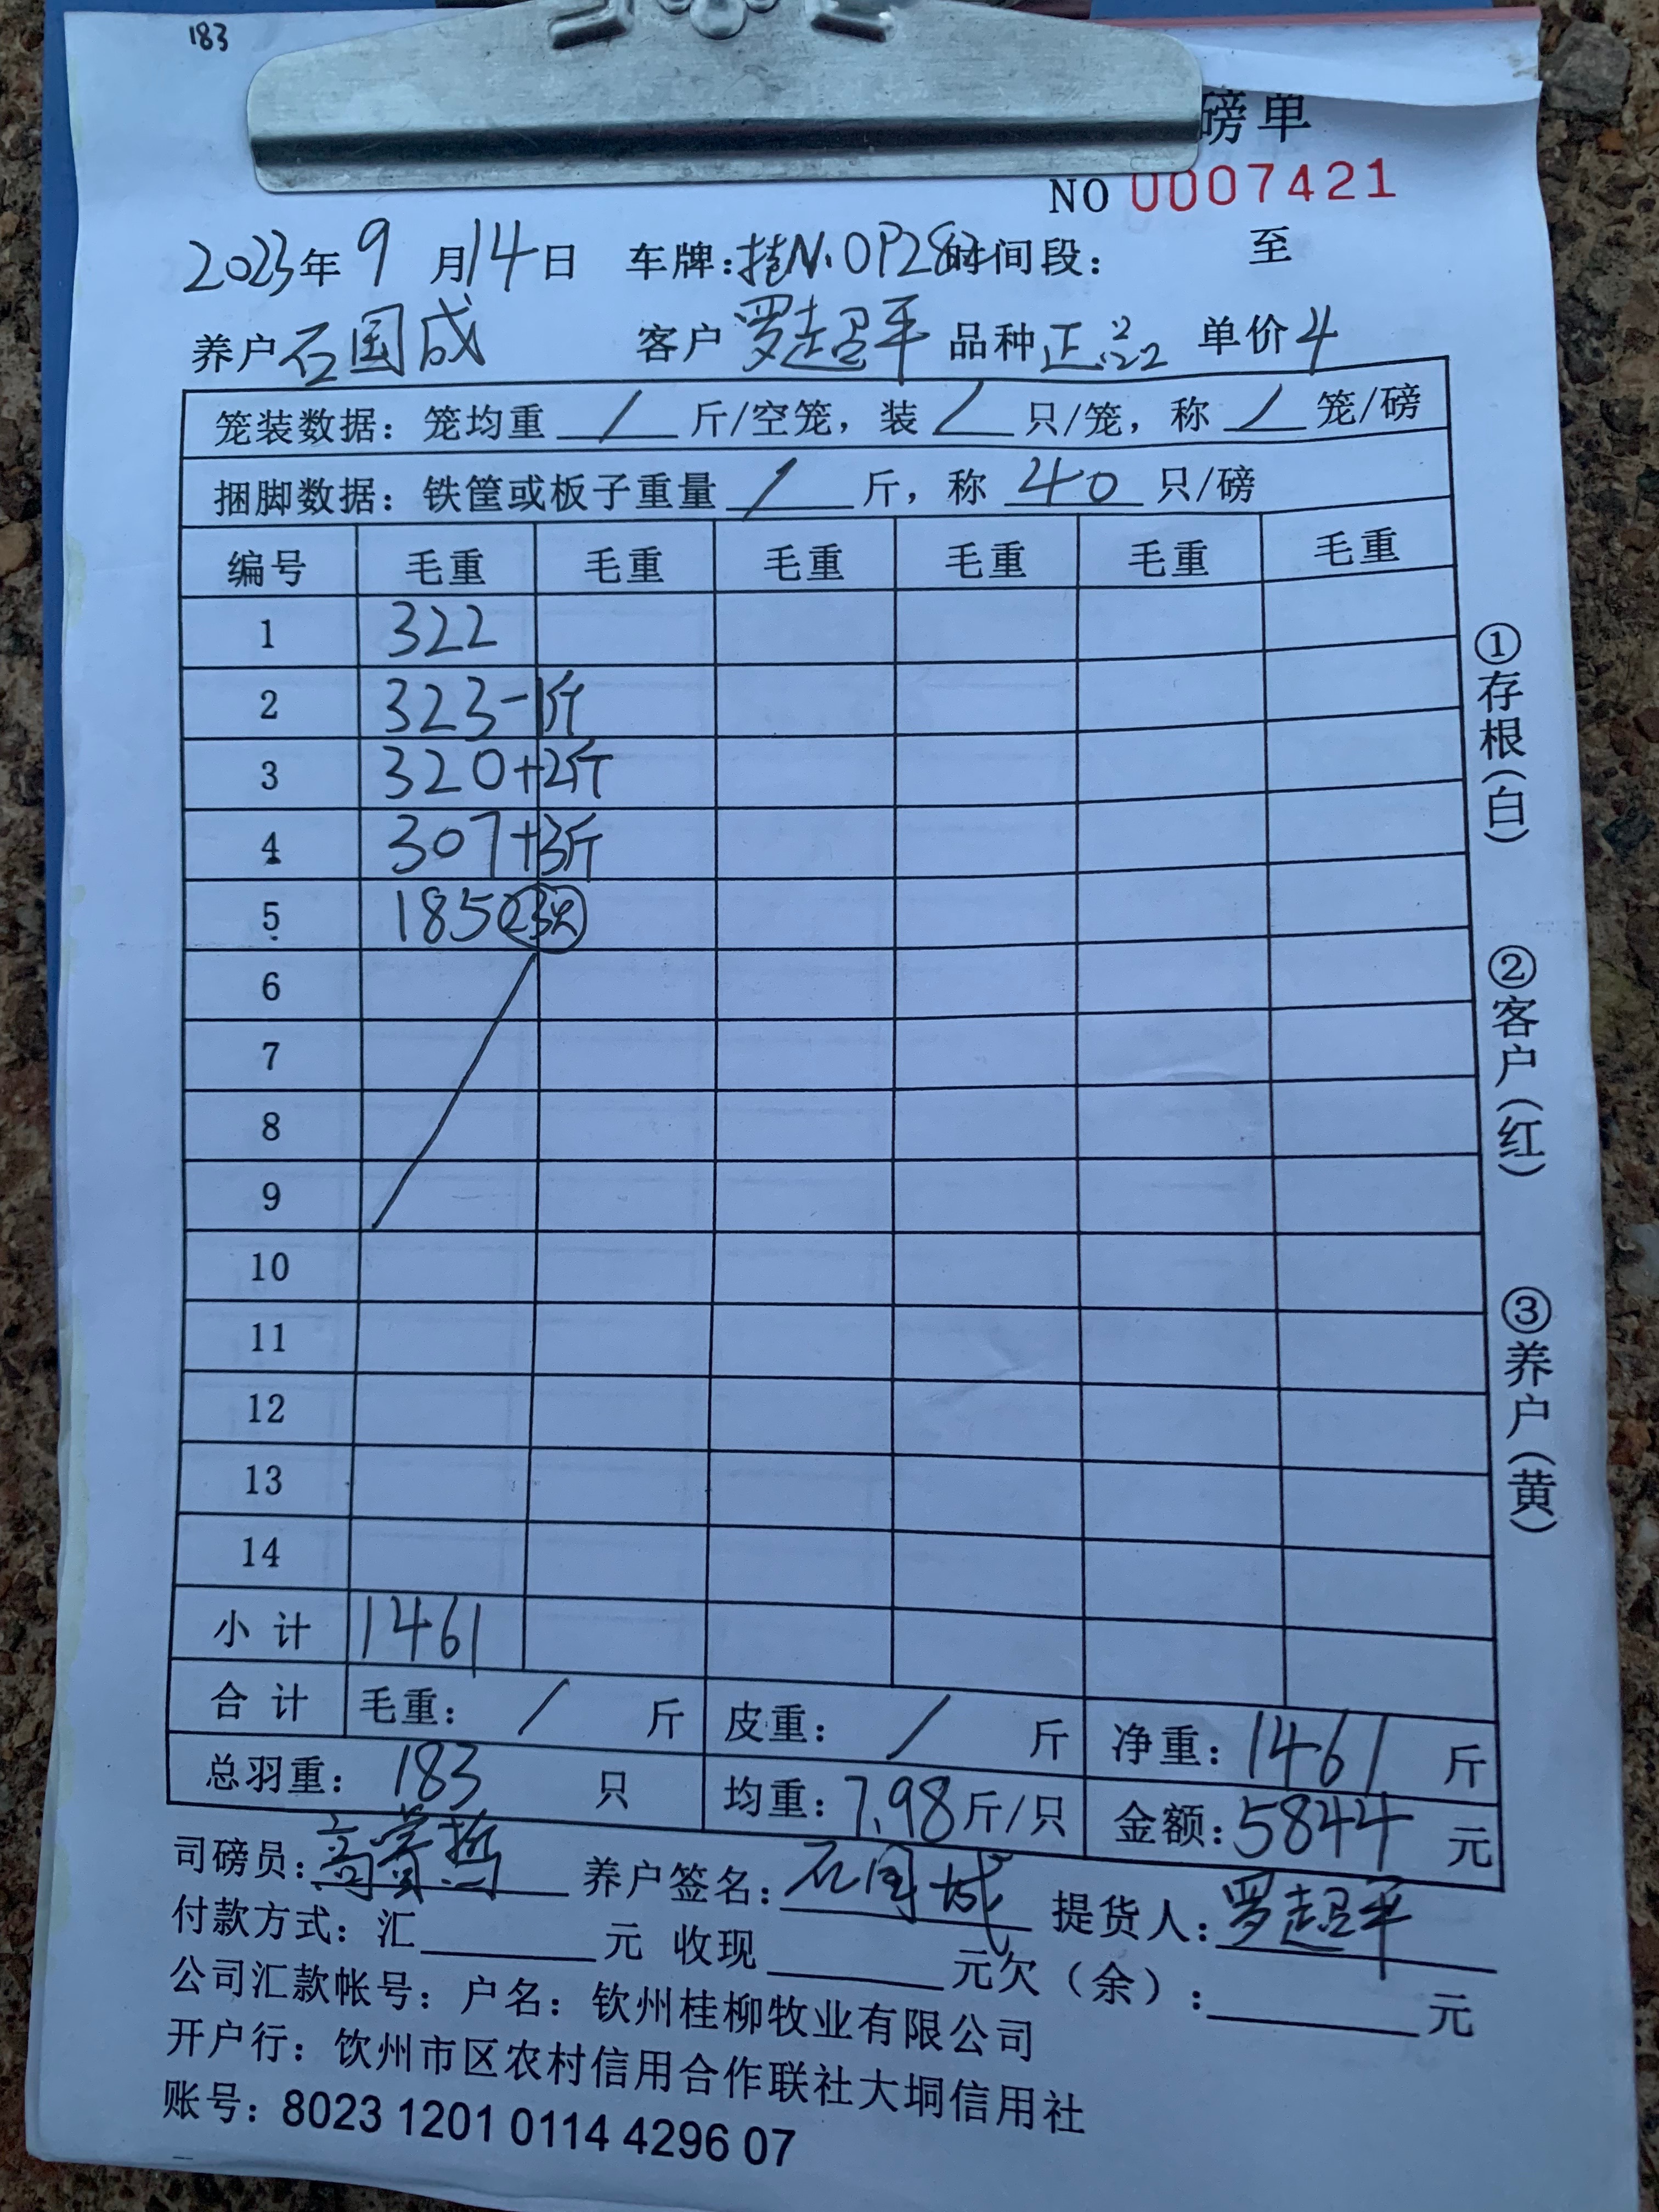 183
磅单
NO 0007421
2023年 9 月14日 车牌:桂N·0P282 时间段: 至
养户 石国成 客户 罗超平 品种 正品2 单价 4
笼装数据: 笼均重 / 斤/空笼, 装 / 只/笼, 称 / 笼/磅
捆脚数据: 铁筐或板子重量 / 斤, 称 40 只/磅
编号 毛重 毛重 毛重 毛重 毛重 毛重
1 322
2 323-1斤
3 320+2斤
4 307+3斤
5 185 23只
6
7
8
9
10
11
12
13
14
小计 1461
合计 毛重: / 斤 皮重: / 斤 净重: 1461 斤
总羽重: 183 只 均重: 7.98 斤/只 金额: 5844 元
司磅员: 养户签名: 石国城 提货人: 罗超平
付款方式: 汇 元 收现 元欠(余): 元
公司汇款帐号: 户名: 钦州桂柳牧业有限公司
开户行: 钦州市区农村信用合作联社大垌信用社
账号: 8023 1201 0114 4296 07
①存根(白)
②客户(红)
③养户(黄)